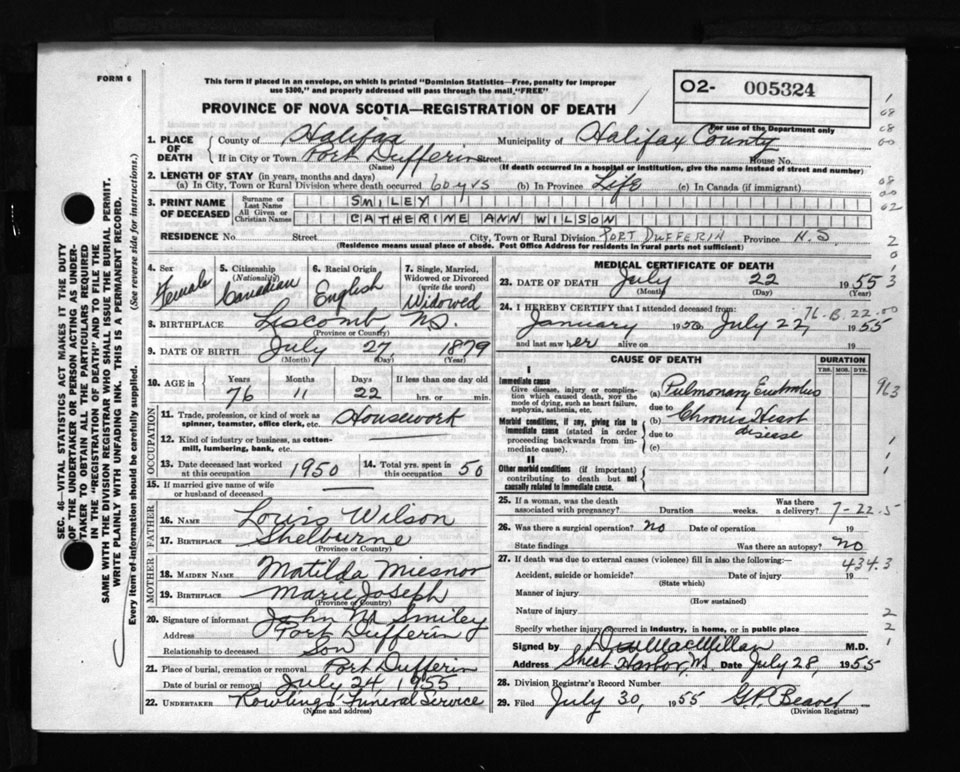 FORM 6
This form if placed in an envelope, on which is printed "Dominion Statistics—Free, penalty for improper
use $300," and properly addressed will pass through the mail, "FREE"
O2- 005324
For use of the Department only
PROVINCE OF NOVA SCOTIA—REGISTRATION OF DEATH
SEC. 46—VITAL STATISTICS ACT MAKES IT THE DUTY
OF THE UNDERTAKER OR PERSON ACTING AS UNDER-
TAKER TO OBTAIN ALL THE PARTICULARS REQUIRED
IN THE "REGISTRATION OF DEATH" AND TO FILE THE
SAME WITH THE DIVISION REGISTRAR WHO SHALL ISSUE THE BURIAL PERMIT.
WRITE PLAINLY WITH UNFADING INK. THIS IS A PERMANENT RECORD.
Every item of information should be carefully supplied. (See reverse side for instructions.)
1. PLACE OF DEATH County of Halifax Municipality of Halifax County
If in City or Town Port Dufferin Street House No.
(Name) (If death occurred in a hospital or institution, give the name instead of street and number)
2. LENGTH OF STAY (in years, months and days)
(a) In City, Town or Rural Division where death occurred 60 yrs (b) In Province Life (c) In Canada (if immigrant)
3. PRINT NAME OF DECEASED Surname or Last Name SMILEY
All Given or Christian Names CATHERINE ANN WILSON
RESIDENCE No Street City, Town or Rural Division PORT DUFFERIN Province N.S.
(Residence means usual place of abode. Post Office Address for residents in rural parts not sufficient)
4. Sex Female
5. Citizenship (Nationality) Canadian
6. Racial Origin English
7. Single, Married, Widowed or Divorced (write the word) Widowed
8. BIRTHPLACE Liscomb NS.
(Province or Country)
9. DATE OF BIRTH July 27 1879
(Month) (Day) (Year)
10. AGE in Years Months Days If less than one day old
76 11 22 hrs. or min.
OCCUPATION
11. Trade, profession, or kind of work as
spinner, teamster, office clerk, etc. Housework
12. Kind of industry or business, as cotton-
mill, lumbering, bank, etc.
13. Date deceased last worked at this occupation 1950
14. Total yrs. spent in this occupation 50
15. If married give name of wife
or husband of deceased
FATHER
16. NAME Louis Wilson
17. BIRTHPLACE Shelburne
(Province or Country)
MOTHER
18. MAIDEN NAME Matilda Miesnor
19. BIRTHPLACE Marie Joseph
(Province or Country)
20. Signature of informant John M. Smiley
Address Port Dufferin
Relationship to deceased Son
21. Place of burial, cremation or removal Port Dufferin
Date of burial or removal July 24, 1955.
22. UNDERTAKER Rowlings' Funeral Service
(Name and address)
MEDICAL CERTIFICATE OF DEATH
23. DATE OF DEATH July 22 1955
(Month) (Day) (Year)
24. I HEREBY CERTIFY that I attended deceased from:
76-B.22.00
January 1950 July 22, 1955
and last saw her alive on 19
CAUSE OF DEATH DURATION
YRS. MOS. DYS.
I
Immediate cause
Give disease, injury or complica-
tion which caused death, NOT the
mode of dying, such as heart failure,
asphyxia, asthenia, etc.
(a) Pulmonary Embolus
due to
Morbid conditions, if any, giving rise to
immediate cause (stated in order
proceeding backwards from im-
mediate cause).
(b) Chronic Heart disease
due to
(c)
II
Other morbid conditions (if important)
contributing to death but not
causally related to immediate cause.
25. If a woman, was the death Was there
associated with pregnancy? Duration weeks. a delivery? 7-22.5
26. Was there a surgical operation? No Date of operation 19
State findings Was there an autopsy? No
27. If death was due to external causes (violence) fill in also the following:—
434.3
Accident, suicide or homicide? Date of injury 19
(State which)
Manner of injury
(How sustained)
Nature of injury
Specify whether injury occurred in industry, in home, or in public place
Signed by MacMillan M.D.
Address Sheet Harbor, NS. Date July 28, 1955
28. Division Registrar's Record Number
29. Filed July 30, 1955 G.P. Beaver
(Division Registrar)